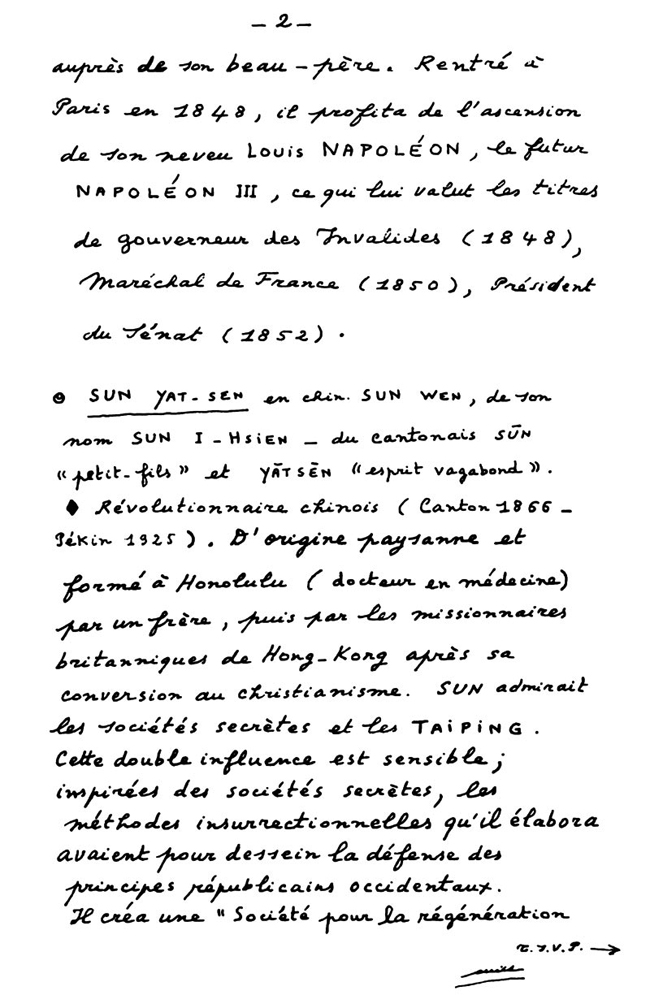 - 2 -
auprès de son beau-père. Rentré à
Paris en 1848, il profita de l'ascension
de son neveu Louis NAPOLÉON, le futur
NAPOLÉON III, ce qui lui valut les titres
de gouverneur des Invalides (1848),
Maréchal de France (1850), Président
du Sénat (1852).
SUN YAT-SEN en chin. SUN WEN, de son
nom SUN I-HSiEN _ du cantonais SŪN
"petit-fils" et YĀTSĒN "esprit vagabond".
♦ Révolutionnaire chinois (Canton 1866 _
Pékin 1925). D'origine paysanne et
formé à Honolulu (docteur en médecine)
par un frère, puis par les missionnaires
britanniques de Hong-Kong après sa
conversion au christianisme. SUN admirait
les sociétés secrètes et les TAiPiNG.
Cette double influence est sensible;
inspirées des sociétés secrètes, les
méthodes insurrectionnelles qu'il élabora
avaient pour dessein la défense des
principes républicains occidentaux.
Il créa une "Société pour la régénération
T.S.V.P. →
suite